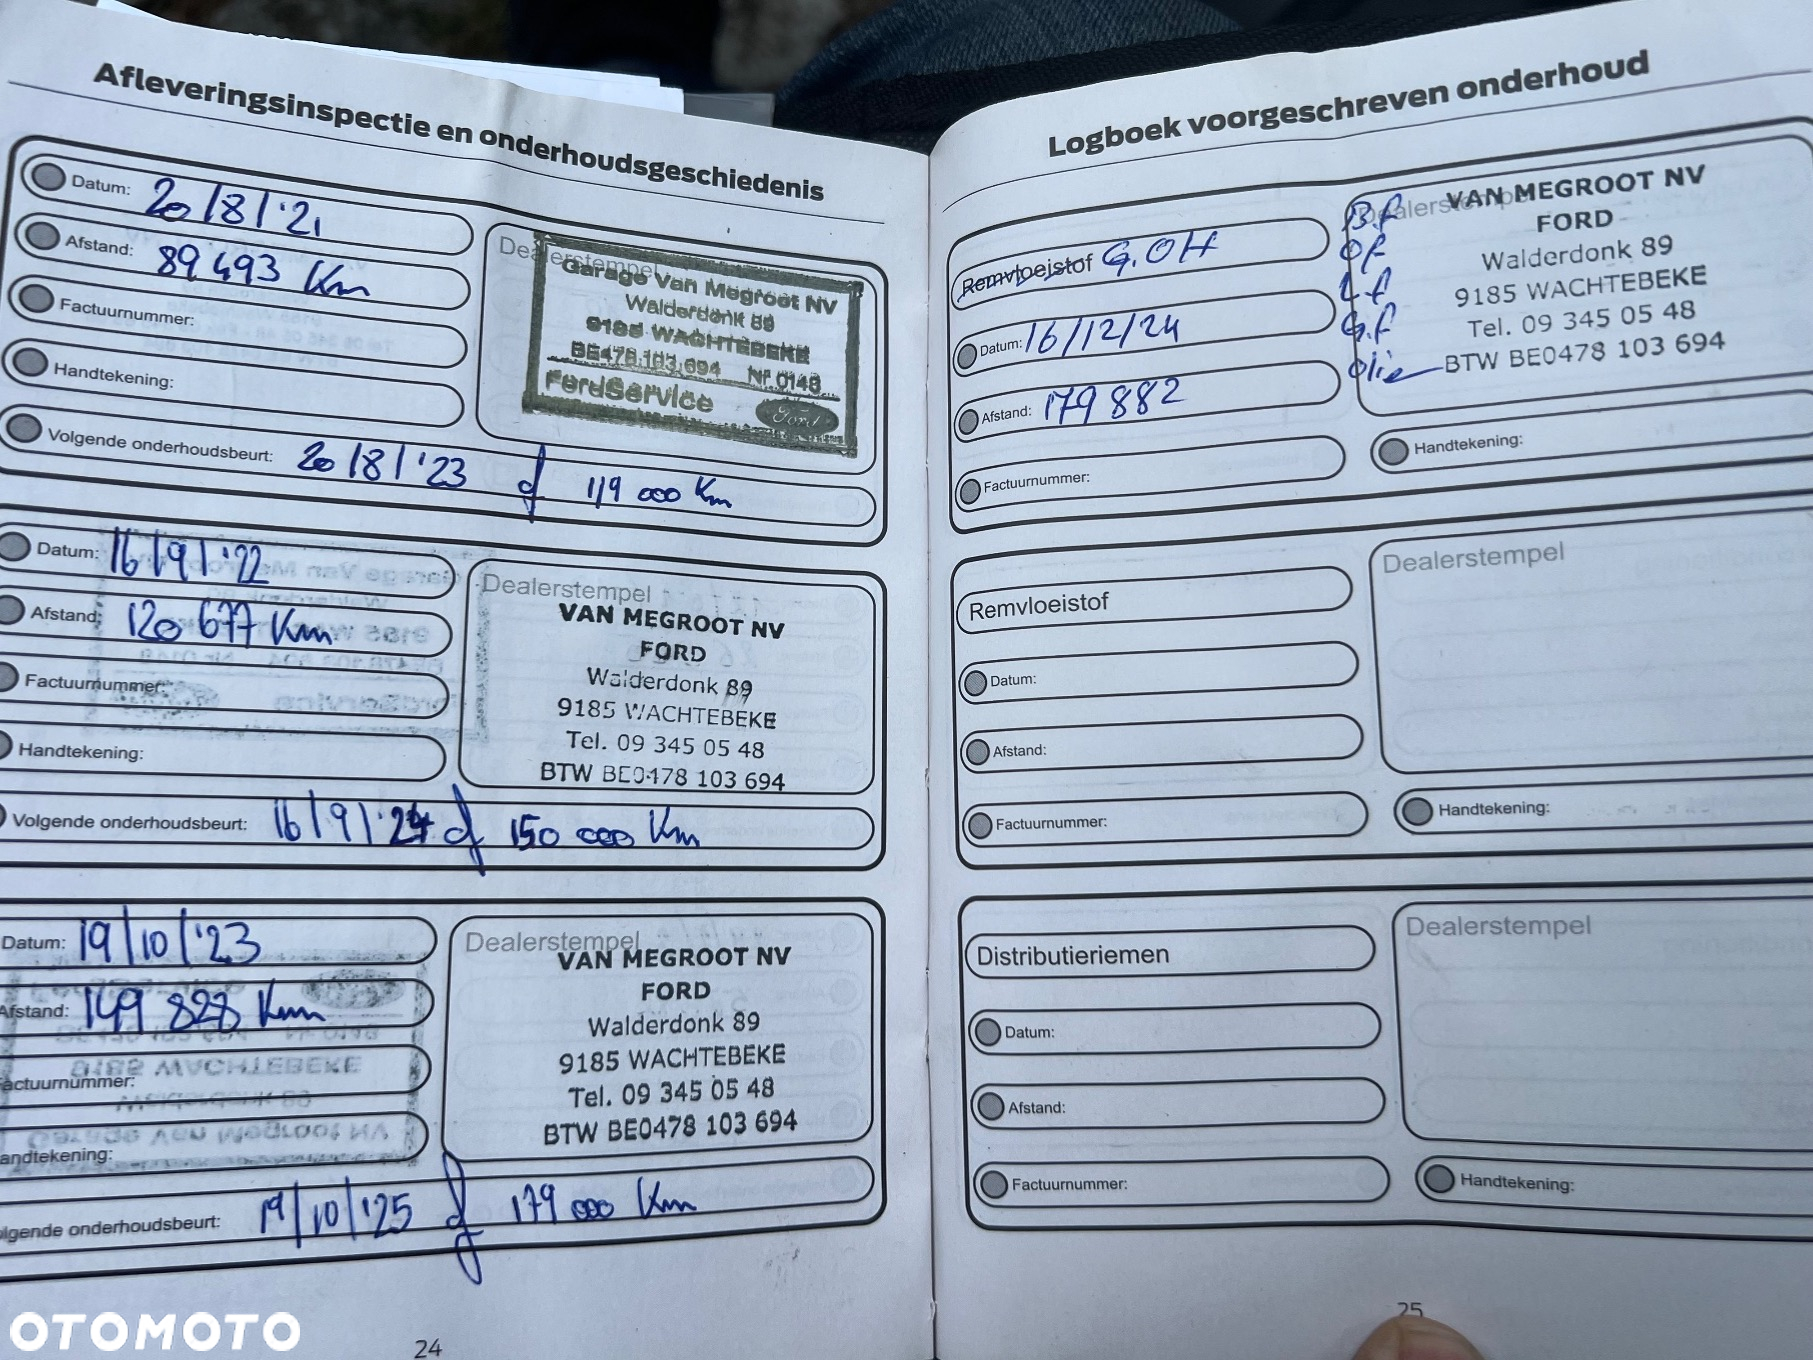 Afleveringsinspectie en onderhoudsgeschiedenis
Datum: 20/8/'21
Afstand: 89.493 Km
Factuurnummer:
Handtekening:
Volgende onderhoudsbeurt: 20/8/'23 of 119 000 Km
Dealerstempel
Garage Van Megroot NV
Walderdonk 89
9185 WACHTEBEKE
BE478.103.694 Nr 0148
FordService
Ford
Datum: 16/9/'22
Afstand: 120 677 Km
Factuurnummer:
Handtekening:
Volgende onderhoudsbeurt: 16/9/'24 of 150 000 Km
Dealerstempel
VAN MEGROOT NV
FORD
Walderdonk 89
9185 WACHTEBEKE
Tel. 09 345 05 48
BTW BE0478 103 694
Datum: 19/10/'23
Afstand: 149 828 Km
actuurnummer:
andtekening:
lgende onderhoudsbeurt: 19/10/'25 of 179 000 Km
Dealerstempel
VAN MEGROOT NV
FORD
Walderdonk 89
9185 WACHTEBEKE
Tel. 09 345 05 48
BTW BE0478 103 694
24
Logboek voorgeschreven onderhoud
Remvloeistof G.OH
Datum: 16/12/24
Afstand: 179882
Factuurnummer:
Dealerstempel
B.f
Of
Lf
G.f
Olie
VAN MEGROOT NV
FORD
Walderdonk 89
9185 WACHTEBEKE
Tel. 09 345 05 48
BTW BE0478 103 694
Handtekening:
Remvloeistof
Datum:
Afstand:
Factuurnummer:
Dealerstempel
Handtekening:
Distributieriemen
Datum:
Afstand:
Factuurnummer:
Dealerstempel
Handtekening:
25
OTOMOTO